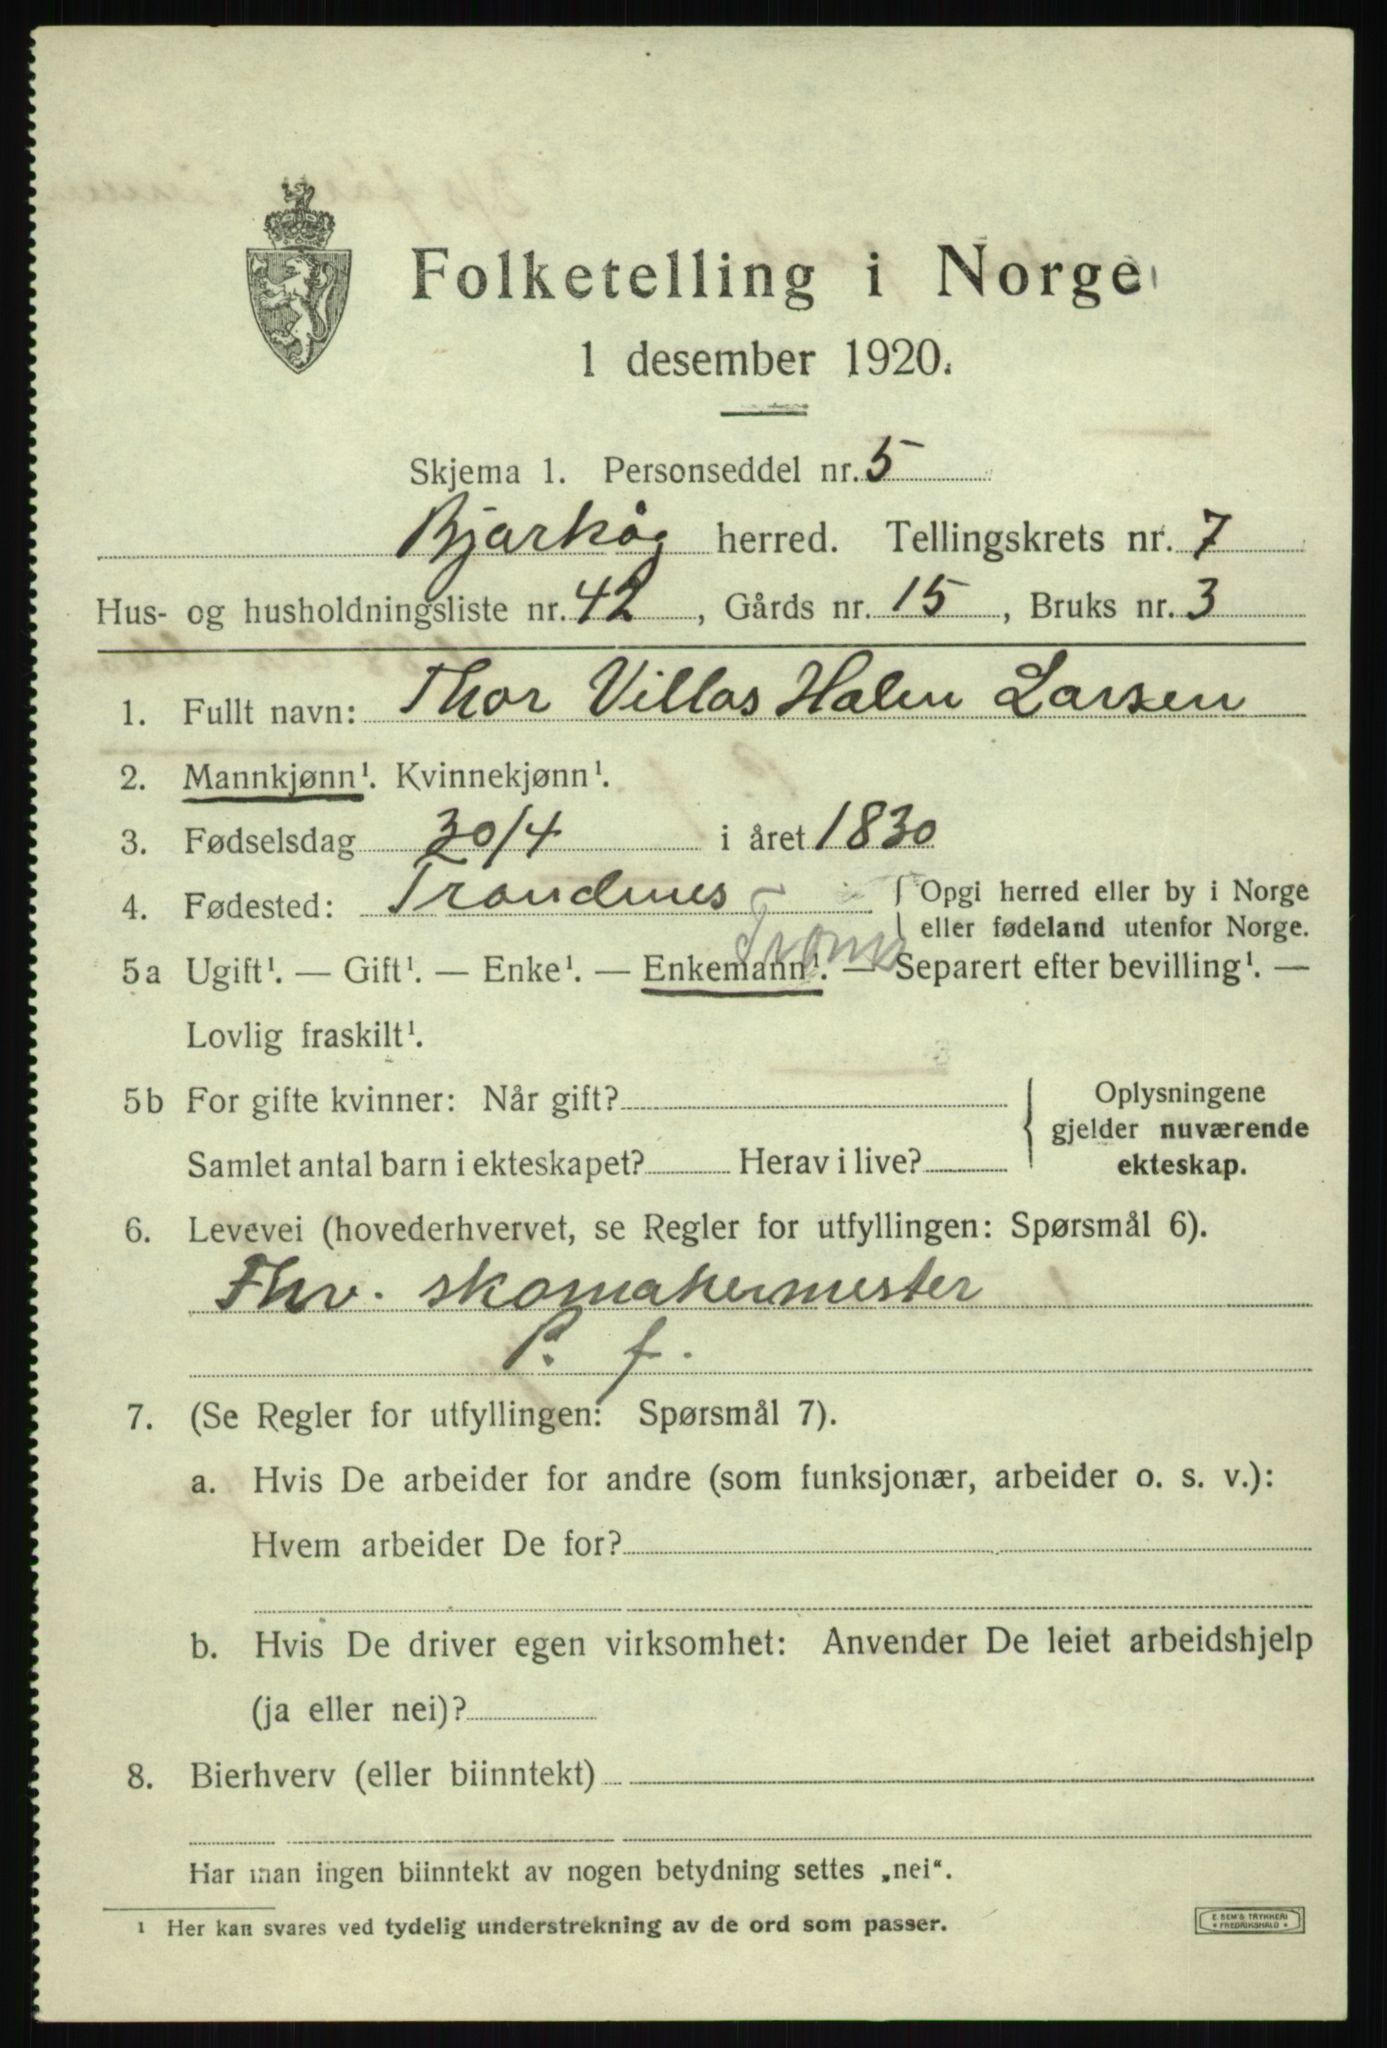 Folketelling i Norge
1 desember 1920.
Skjema 1. Personseddel nr. 5
Bjarkøy herred. Tellingskrets nr. 7
Hus- og husholdningsliste nr. 42, Gårds nr. 15, Bruks nr. 3
1. Fullt navn: Thor Villas Halen Larsen
2. Mannkjønn¹. Kvinnekjønn¹.
3. Fødselsdag 30/4 i året 1830
4. Fødested: Trondenes { Opgi herred eller by i Norge
eller fødeland utenfor Norge.
Troms
5a Ugift¹. — Gift¹. — Enke¹. — Enkemann¹. — Separert efter bevilling¹. —
Lovlig fraskilt¹.
5b For gifte kvinner: Når gift? { Oplysningene
gjelder nuværende
Samlet antal barn i ekteskapet? Herav i live? ekteskap.
6. Levevei (hovederhvervet, se Regler for utfyllingen: Spørsmål 6).
Fhv. skomakermester
P. f.
7. (Se Regler for utfyllingen: Spørsmål 7).
a. Hvis De arbeider for andre (som funksjonær, arbeider o. s. v.):
Hvem arbeider De for?
b. Hvis De driver egen virksomhet: Anvender De leiet arbeidshjelp
(ja eller nei)?
8. Bierhverv (eller biinntekt)
Har man ingen biinntekt av nogen betydning settes „nei“.
¹ Her kan svares ved tydelig understrekning av de ord som passer.
E. SEM'S TRYKKERI
* FREDRIKSHALD *